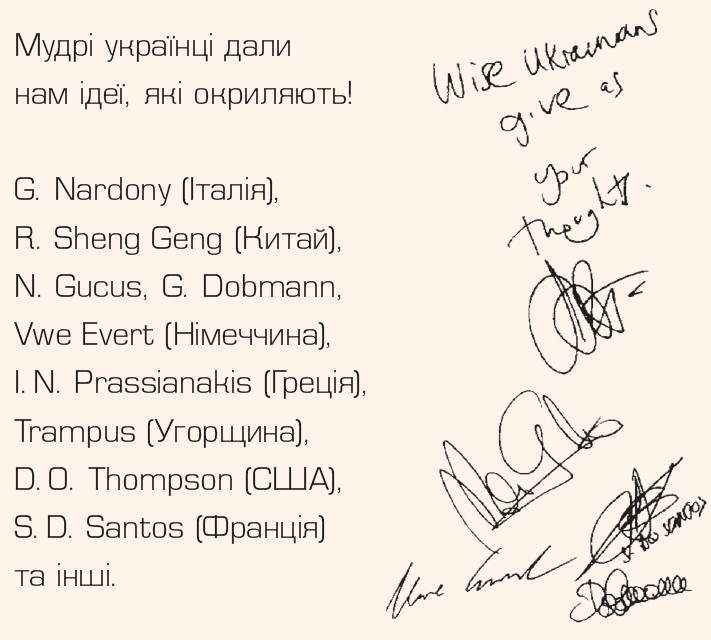 Мудрі українці дали
нам ідеї, які окриляють!
G. Nardony (Італія),
R. Sheng Geng (Китай),
N. Gucus, G. Dobmann,
Vwe Evert (Німеччина),
I. N. Prassianakis (Греція),
Trampus (Угорщина),
D. O. Thompson (США),
S. D. Santos (Франція)
та інші.
Wise Ukrainans
give as
your
thoughts.